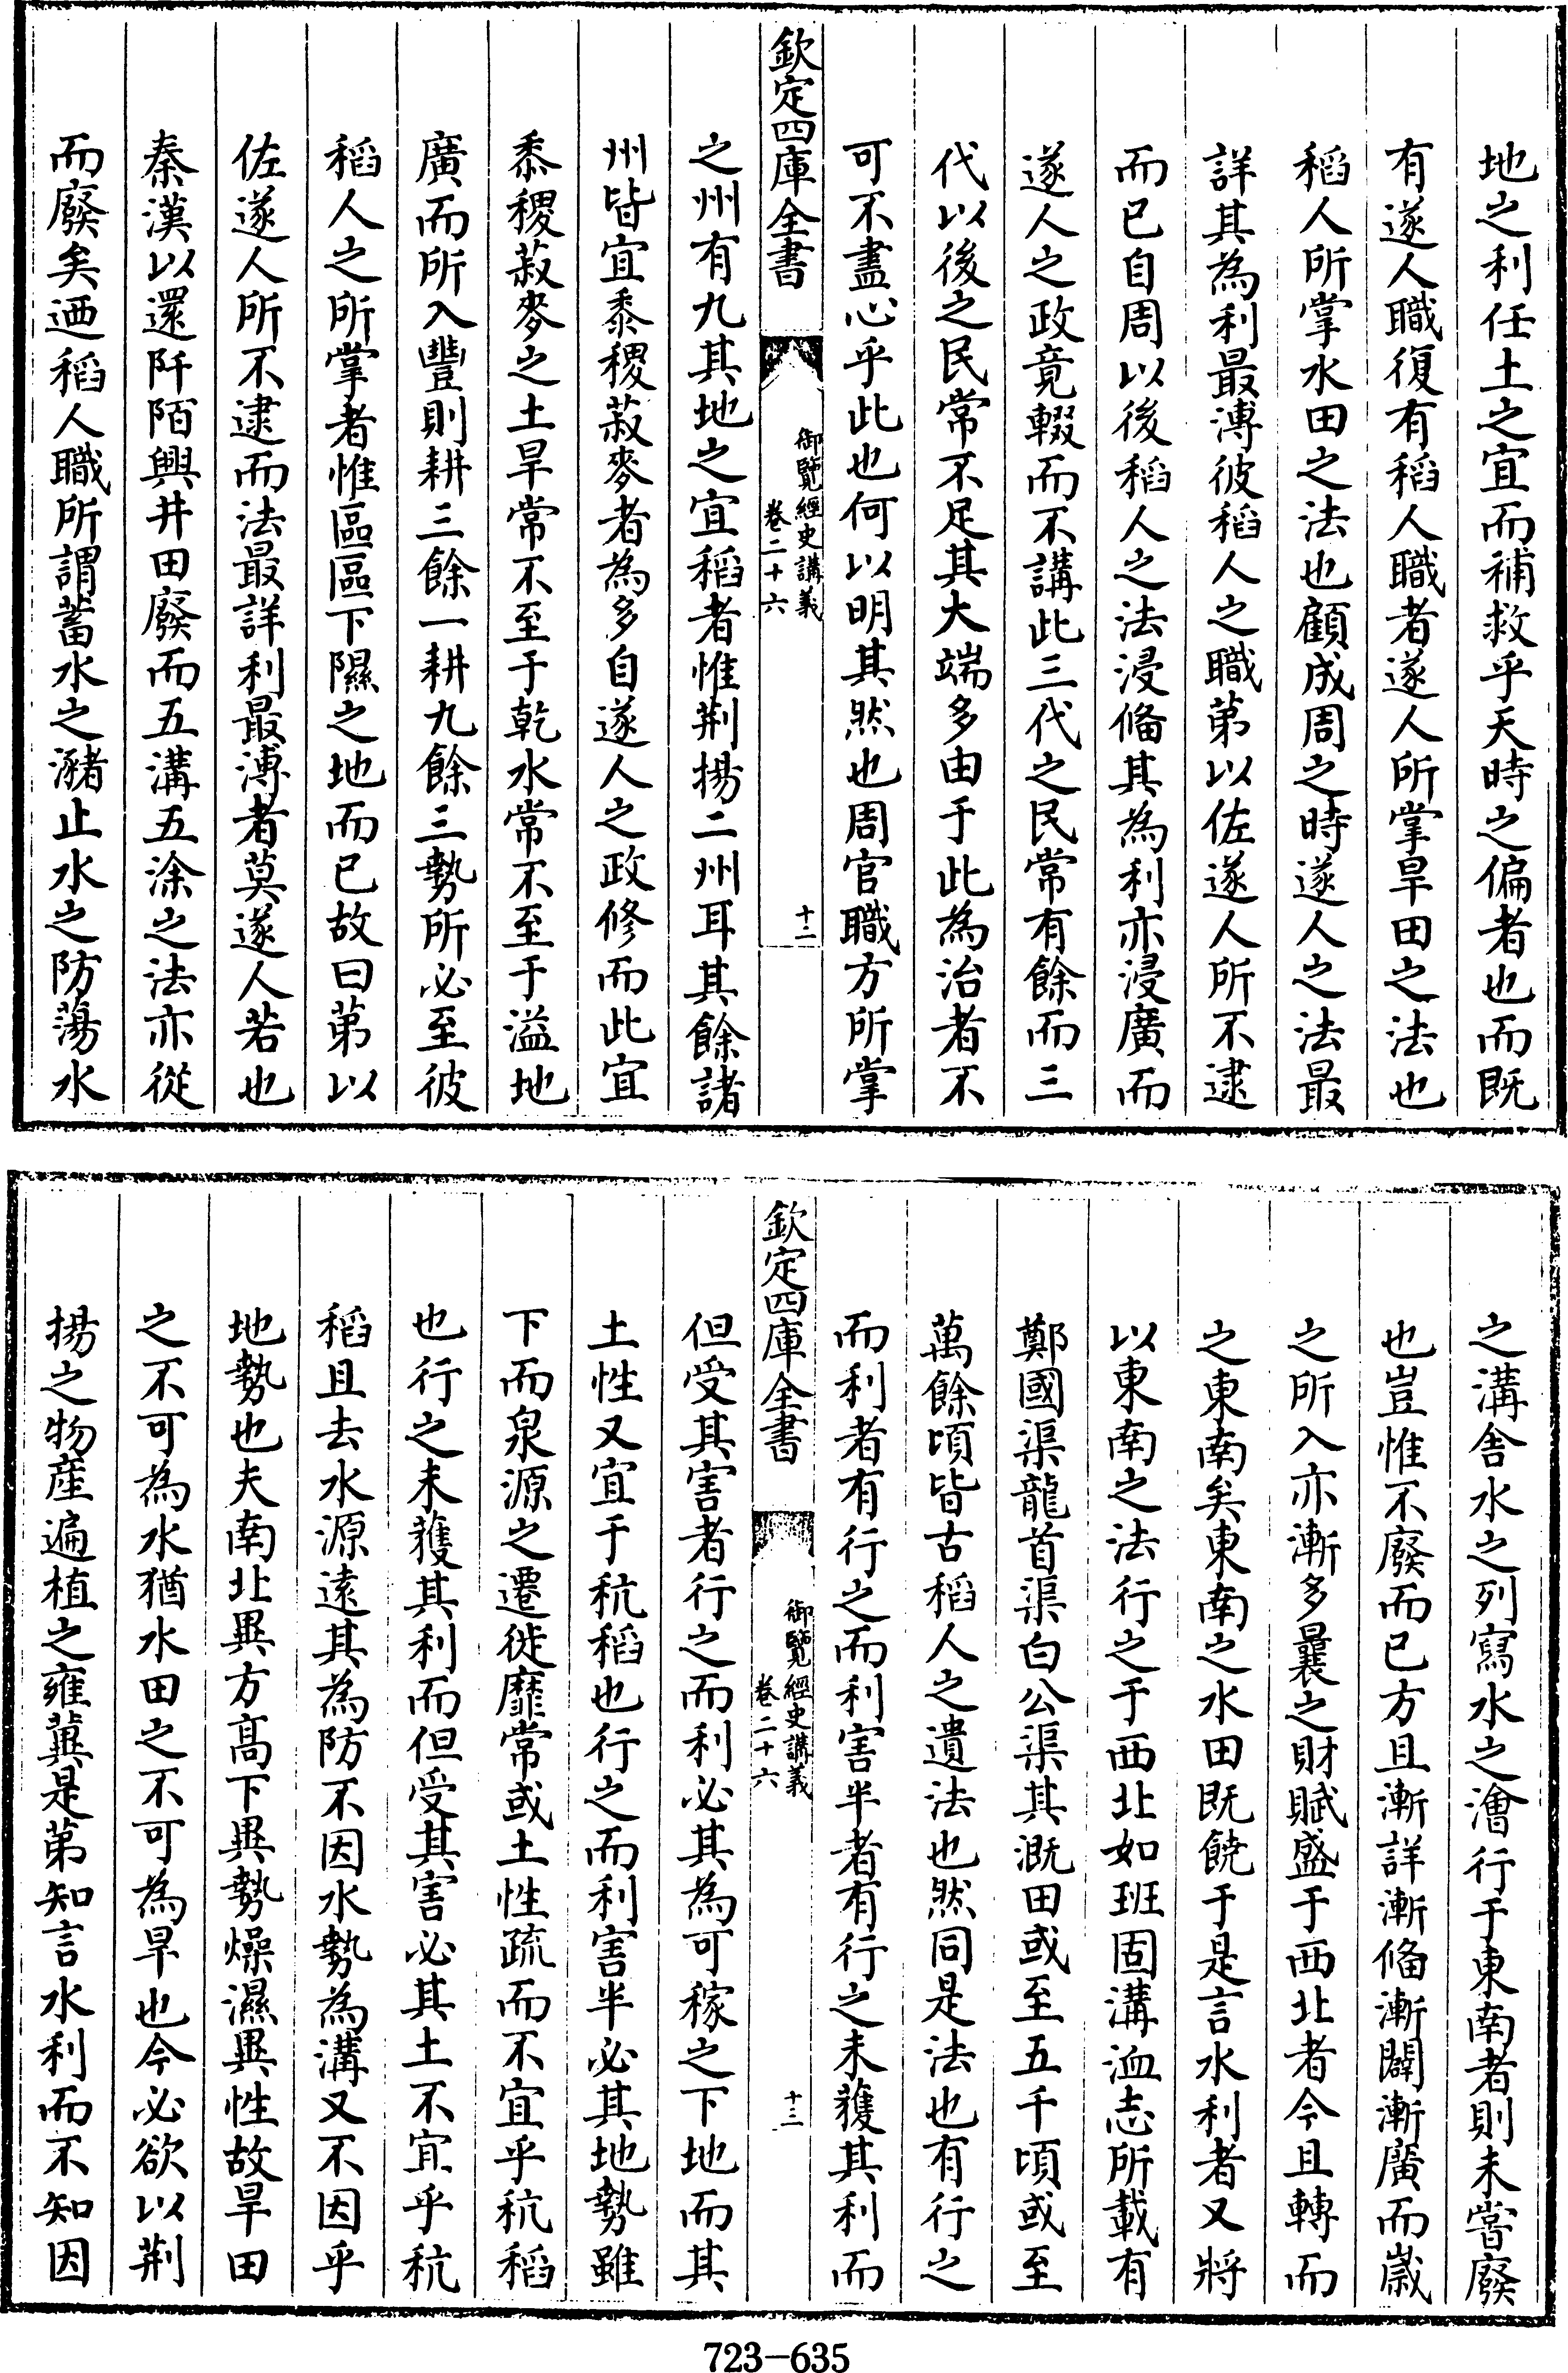 地之利任土之宜而補救乎天時之偏者也而既
有遂人職復有稻人職者遂人所掌旱田之法也
稻人所掌水田之法也顧成周之時遂人之法最
詳其為利最溥彼稻人之職第以佐遂人所不逮
而已自周以後稻人之法浸備其為利亦浸廣而
遂人之政竟輟而不講此三代之民常有餘而三
代以後之民常不足其大端多由于此為治者不
可不盡心乎此也何以明其然也周官職方所掌
欽定四庫全書
御覽經史講義
卷二十六
十二
之州有九其地之宜稻者惟荆揚二州耳其餘諸
州皆宜黍稷菽麥者為多自遂人之政修而此宜
黍稷菽麥之土旱常不至于乾水常不至于溢地
廣而所入豐則耕三餘一耕九餘三勢所必至彼
稻人之所掌者惟區區下隰之地而已故曰第以
佐遂人所不逮而法最詳利最溥者莫遂人若也
秦漢以還阡陌興井田廢而五溝五涂之法亦從
而廢矣迺稻人職所謂蓄水之瀦止水之防蕩水
之溝舍水之列寫水之澮行于東南者則未嘗廢
也豈惟不廢而已方且漸詳漸備漸闢漸廣而嵗
之所入亦漸多曩之財賦盛于西北者今且轉而
之東南矣東南之水田既饒于是言水利者又將
以東南之法行之于西北如班固溝洫志所載有
鄭國渠龍首渠白公渠其溉田或至五千頃或至
萬餘頃皆古稻人之遺法也然同是法也有行之
而利者有行之而利害半者有行之未獲其利而
欽定四庫全書
御覽經史講義
卷二十六
十三
但受其害者行之而利必其為可稼之下地而其
土性又宜于秔稻也行之而利害半必其地勢雖
下而泉源之遷徙靡常或土性疏而不宜乎秔稻
也行之未獲其利而但受其害必其土不宜乎秔
稻且去水源遠其為防不因水勢為溝又不因乎
地勢也夫南北異方高下異勢燥濕異性故旱田
之不可為水猶水田之不可為旱也今必欲以荆
揚之物産遍植之雍冀是第知言水利而不知因
723-635